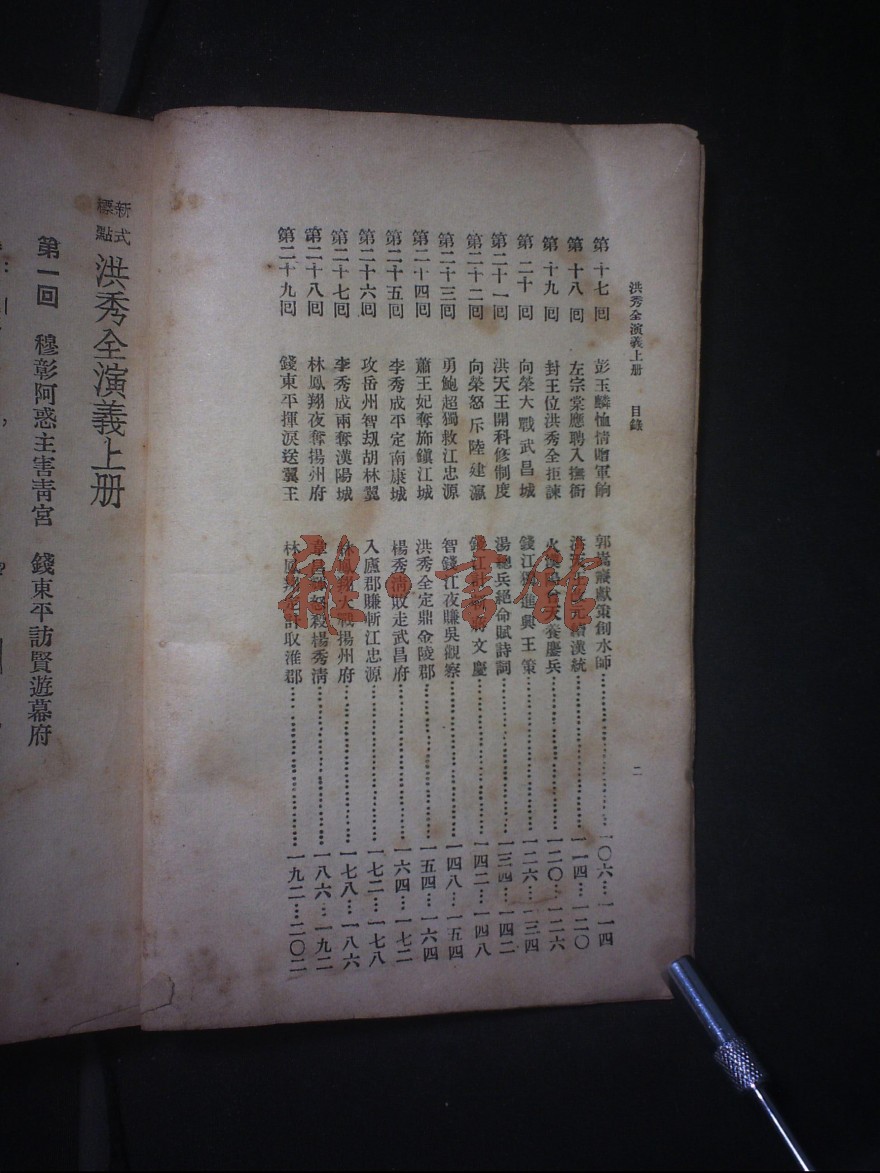 洪秀全演義上册 目錄 二
第十七回 彭玉麟恤情贈軍餉 郭嵩燾獻策創水師 一〇六 一一四
第十八回 左宗棠應聘入撫衙 洪天王改元續漢統 一一四 一二〇
第十九回 封王位洪秀全拒諫 火漢陽曾天養鏖兵 一二〇 一二六
第二十回 向榮大戰武昌城 錢江獨進興王策 一二六 一三四
第二十一回 洪天王開科修制度 湯總兵絕命賦詩詞 一三四 一四二
第二十二回 向榮怒斥陸建瀛 錢江計斬蔣文慶 一四二 一四八
第二十三回 勇鮑超獨救江忠源 智錢江夜賺吳觀察 一四八 一五四
第二十四回 蕭王妃奪旆鎮江城 洪秀全定鼎金陵郡 一五四 一六四
第二十五回 李秀成平定南康城 楊秀清敗走武昌府 一六四 一七二
第二十六回 攻岳州智劫胡林翼 入廬郡賺斬江忠源 一七二 一七八
第二十七回 李秀成兩奪漢陽城 林鳳翔大戰揚州府 一七八 一八六
第二十八回 林鳳翔夜奪揚州府 韋昌輝怒殺楊秀清 一八六 一九二
第二十九回 錢東平揮淚送翼王 林鳳翔定計取淮郡 一九二 二〇二
雅·書館
新式標點 洪秀全演義上册
第一回 穆彰阿惑主害青宮 錢東平訪賢遊幕府